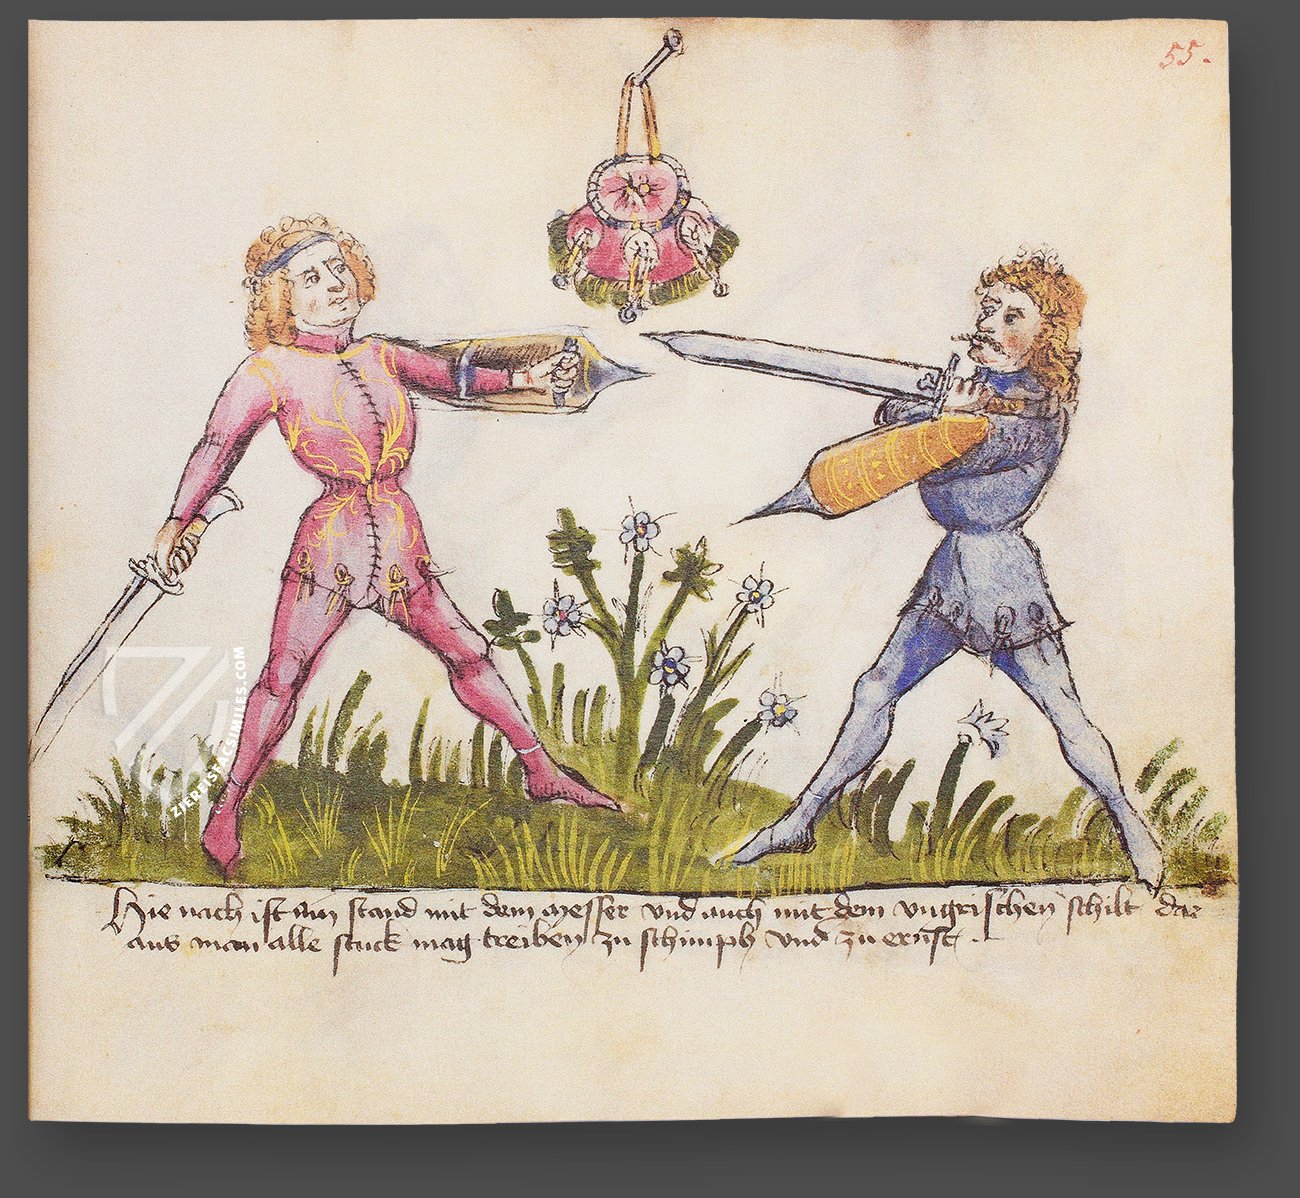 55.
Hie nach ist ain stand mit dem messer vnd auch mit dem vngrischen schilt dar
aus man alle stuck mag treiben zu schimph vnd zu ernst .
ZIEREISFACSIMILES.COM